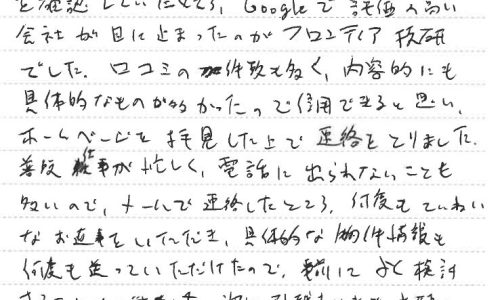 を確認していたところ、Googleで評価の高い
会社が目に止まったのがフロンティア技研
でした。口コミの件数も多く、内容的にも
具体的なものが多かったので信用できると思い、
ホームページを拝見した上で連絡をとりました。
普段仕事が忙しく、電話に出られないことも
多いので、メールで連絡したところ、何度もていねい
なお返事をいただき、具体的な物件情報も
何度も送っていただけたので、事前によく検討